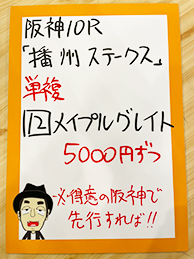 阪神10R
「播州ステークス」
単複
12メイプルグレイト
5000円ずつ
得意の阪神で
先行すれば!!